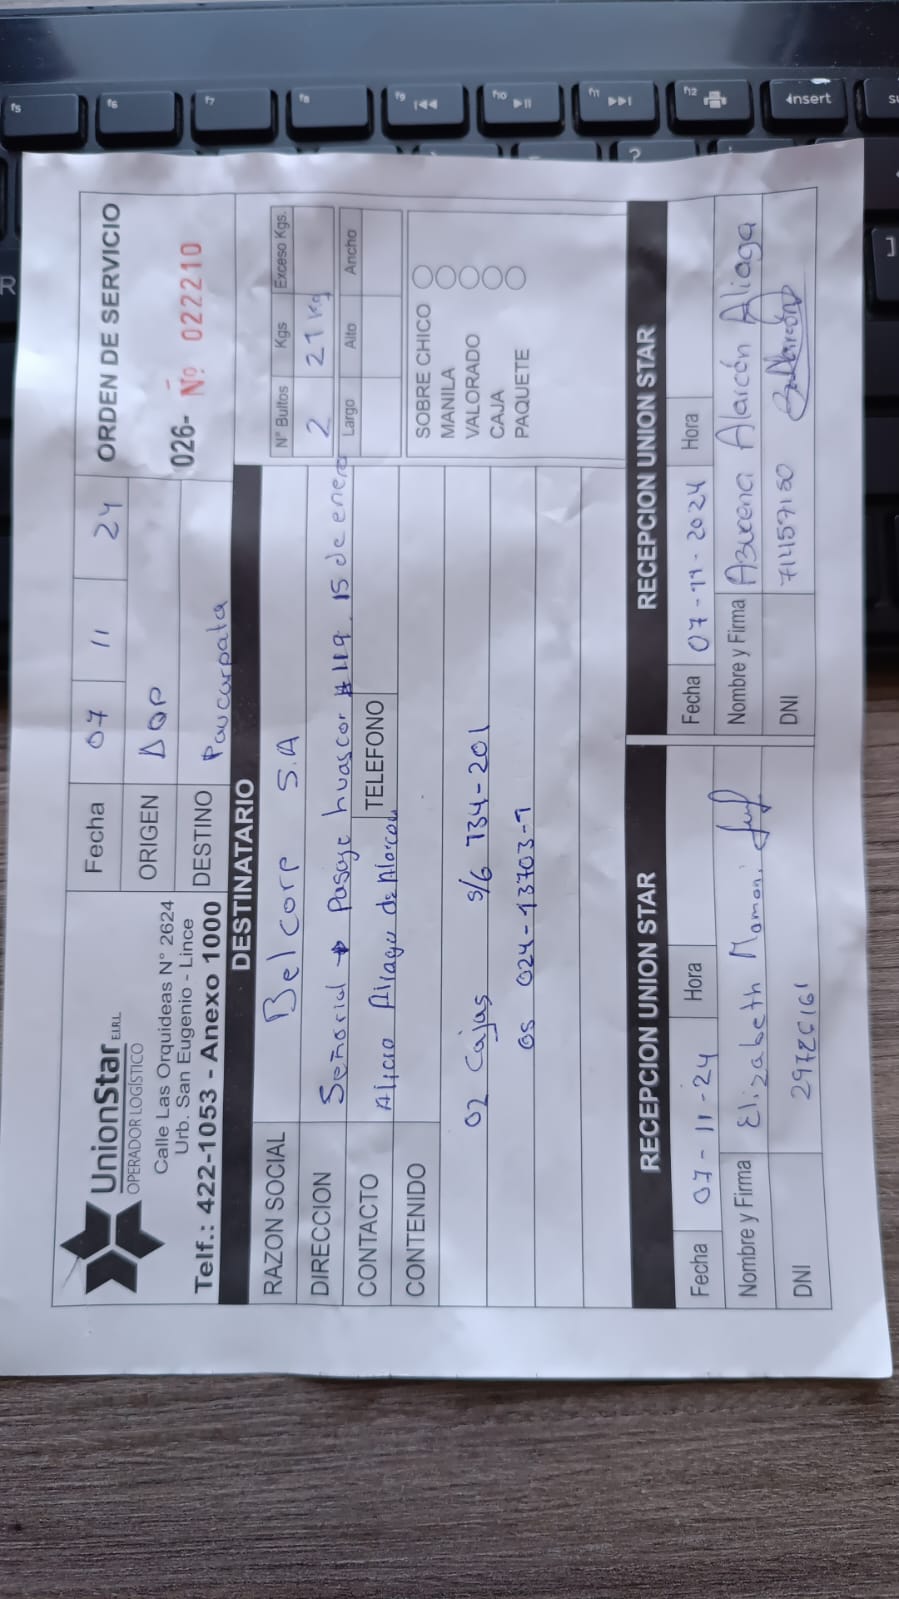 UnionStar E.I.R.L.
OPERADOR LOGÍSTICO
Calle Las Orquideas N° 2624
Urb. San Eugenio - Lince
Telf.: 422-1053 - Anexo 1000
Fecha 07 11 24
ORIGEN AQP
DESTINO Paucarpata
ORDEN DE SERVICIO
026- Nº 022210
DESTINATARIO
RAZON SOCIAL Belcorp S.A
DIRECCION Señorial Pasaje huascar # 119. 15 de enero
CONTACTO Alicia Aliaga de Alarcon TELEFONO
CONTENIDO
02 Cajas S/G 734-201
OS 024-13703-1
N° Bultos Kgs Exceso Kgs.
2 21 Kg
Largo Alto Ancho
SOBRE CHICO
MANILA
VALORADO
CAJA
PAQUETE
RECEPCION UNION STAR
Fecha 07-11-24 Hora
Nombre y Firma Elizabeth Mamani
DNI
RECEPCION UNION STAR
Fecha 07-11-2024 Hora
Nombre y Firma Azucena Alarcón Aliaga
DNI 71457150
f5
f6
f7
f8
f9
f10
f11
f12
insert
R